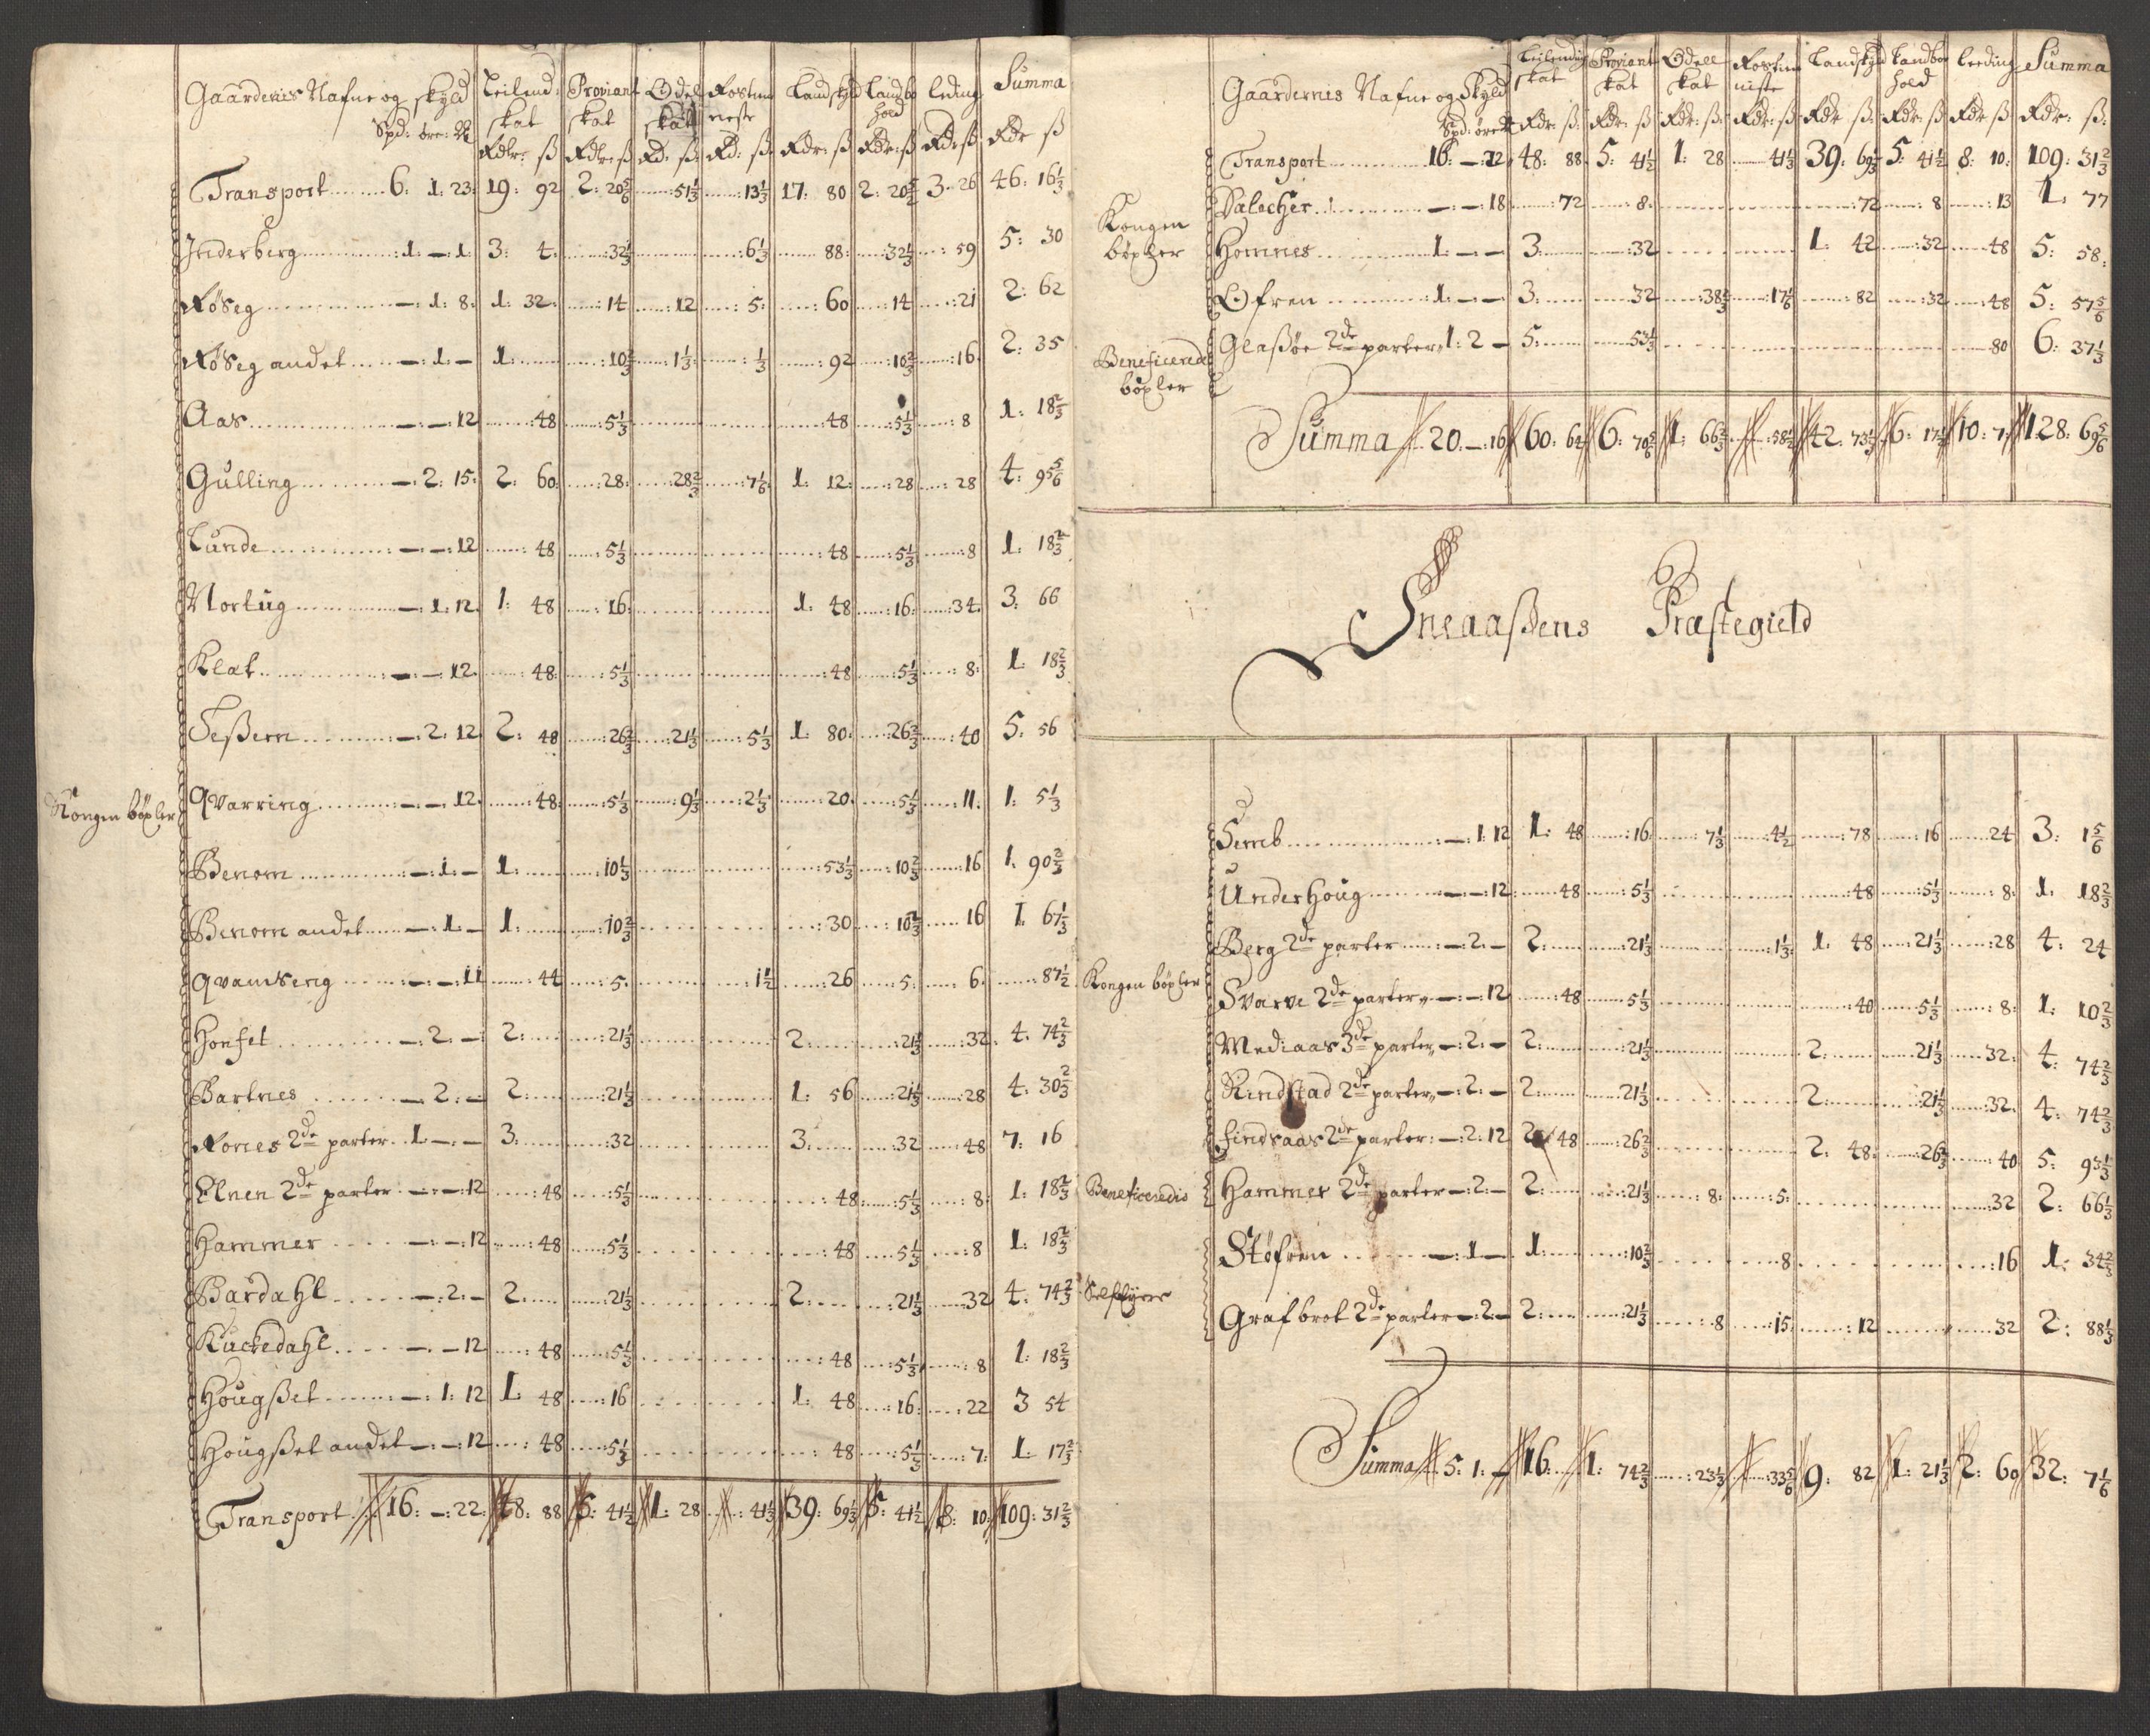 Gaardernis Nafne og skyld Leilend: Proviant Odel Rostien Landskyld Landbo leding Summa
skat skat skatt neste hold
Spd: øre: Rdlr: ß Rdlr: ß Rd: ß Rd: ß Rdr: ß Rdr: ß Rd: ß Rdr ß
Transport 6: 1: 23: 19: 92 2: 20 5/6 51 1/3 13 1/3 17: 80 2: 20 5/6 3: 26 46: 16 1/3
Inderberg 1: — 1: 3: 4: 32 1/3 6 1/3 88: 32 1/3 59 5: 30
Røseg —: 1: 8: 1: 32: 14 12 5: 60 14 21 2: 62
Røseg andet —: 1: — 1: 10 2/3 1 1/3 1/3 92 10 2/3 16 2: 35
Aas —: —: 12 48 5 1/3 48 5 1/3 8 1: 18 2/3
Gulling —: 2: 15: 2: 60: 28: 28 2/3 7 1/6 1: 12: 28 28 4: 95 5/6
Lunde —: —: 12 48 5 1/3 48 5 1/3 8 1: 18 2/3
Nortug —: 1: 12 1: 48 16: 1: 48 16: 34 3: 66
Klat —: —: 12 48: 5 1/3 48 5 1/3 8: 1: 18 2/3
Seßem —: 2: 12 2: 48 26 2/3 21 1/3 5 1/3 1: 80: 26 2/3 40 5: 56
Kongen bøxler Qvarring —: —: 12 48: 5 1/3 9 1/3 2 1/3 20 5 1/3 11: 1: 5 1/3
Benom —: 1: — 1: 10 1/3 53 1/3 10 2/3 16 1: 90 2/3
Benom andet —: 1: — 1: 10 2/3 30 10 2/3 16 1: 67 1/3
Qvamseng —: —: 11 44 5: 1 1/2 26 5: 6: 87 1/2
Honset —: 2: — 2: 21 1/3 2: 21 1/3 32 4: 74 2/3
Bartnes —: 2: — 2: 21 1/3 1: 56 21 1/3 28 4: 30 2/3
Rones 2de parter 1: —: — 3: 32 3: 32 48 7: 16
Elnen 2de parter —: —: 12 48 5 1/3 48 5 1/3 8: 1: 18 2/3
Hammer —: —: 12 48 5 1/3 48 5 1/3 8 1: 18 2/3
Bardahl —: 2: — 2: 21 1/3 2: 21 1/3 32 4: 74 2/3
Kuckedahl —: — 12 48 5 1/3 48 5 1/3 8 1: 18 2/3
Hougßet —: 1: 12 1: 48 16 1: 48 16: 22 3 54
Hougßet andet —: —: 12 48 5 1/3 48 5 1/3 7: 1: 17 2/3
Transport 16: —: 22: 48: 88 5: 41 1/2 1: 28 41 1/3 39: 69 1/3 5: 41 1/2 8: 10: 109: 31 2/3
Gaardernis Nafne og Skyld Leilending Proviant Odell Rostien Landskyld Landbo Leeding Summa
skat skat skat niste hold
Spd: øre Rdr: ß: Rdr: ß Rdr: ß: Rdr: ß Rdr ß: Rdr: ß Rdr ß Rdr: ß:
Transport 16: —: 22 48: 88 5: 41 1/2 1: 28 41 1/3 39: 69 1/3 5: 41 1/2 8: 10: 109: 31 2/3
Kongen bøxler
Dalecher —: —: 18 72 8: 72 8 13 1: 77
Homnes 1: —: — 3: 32 1: 42 32 48 5: 58:
Ofren 1: —: — 3: 32 38 1/3 17 1/6 82 32 48 5: 57 5/6
Beneficered bøxler
Glaßøe 2de parter 1: 2 — 5: 53 1/3 80 6: 37 1/3
Summa 20: —: 16 60: 64 6: 70 5/6 1: 66 2/3 58 1/2 42: 73 1/3 6: 17 1/2 10: 7: 128: 69 5/6
Sneaaßens Præstegield
Semb —: 1: 12 1: 48 16: 7 1/3 4 1/2 78 16 24 3: 1 5/6
Underhoug —: —: 12 48 5 1/3 48 5 1/3 8: 1: 18 2/3
Berg 2de parter —: 2: — 2: 21 1/3 1 1/3 1: 48 21 1/3 28 4: 24
Kongen bøxler Svarve 2de parter —: —: 12 48 5 1/3 40 5 1/3 8: 1: 10 2/3
Mediaas 3de parter —: 2: — 2: 21 1/3 2: 21 1/3 32: 4: 74 2/3
Rindstad 2de parter —: 2: — 2: 21 1/3 2: 21 1/3 32: 4: 74 2/3
Findsaas 2de parter: —: 2: 12 2: 48 26 2/3 2: 48: 26 2/3 40 5: 93 1/3
Beneficeredis Hammer 2de parter —: 2: — 2: 21 1/3 8: 5: 32 2: 66 1/3
Støfren —: 1 — 1: 10 2/3 8 16 1: 34 2/3
Selfeyere Grafbrot 2de parter —: 2: — 2: 21 1/3 8 15: 12 32 2: 88 1/3
Summa 5: 1: — 16: 1: 74 2/3 23 1/3 33 5/6 9: 82 1: 21 1/3 2: 60 32: 7 1/6